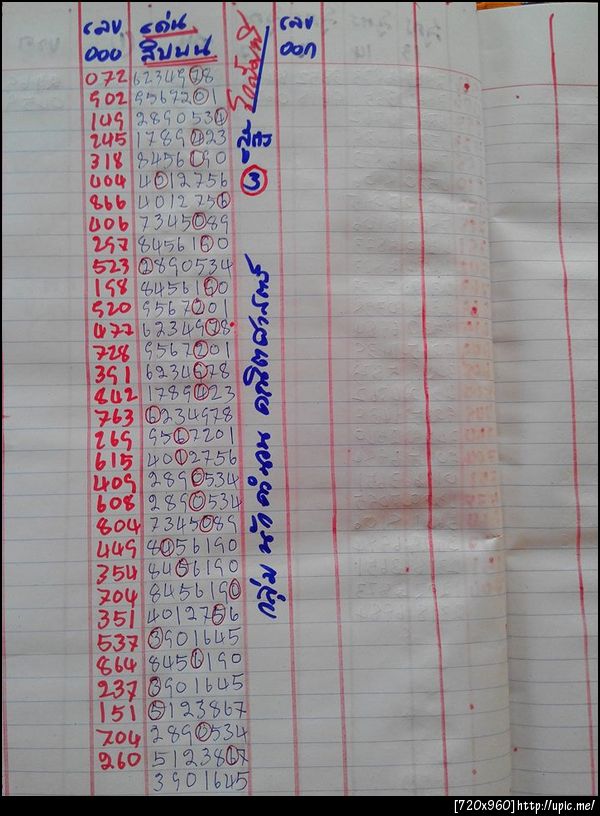 เลข เด่น เลข
000 สิบบน ออก
072 6234978
902 9567201
149 2890534
245 1789423
318 8456190
404 4012756
866 4012756
406 7345089
297 8456190
523 2890534
198 8456190
920 9567201
477 6234978
728 9567201
391 6234978
842 1789423
763 6234978
269 9567201
615 4012756
409 2890534
608 2890534
804 7345089
449 8456190
354 8456190
704 8456190
351 4012756
537 3901645
864 8456190
237 3901645
151 5123867
704 2890534
260 5123867
3901645
3
กลุ่ม นัก คำนวน คณิตศาสตร์
[720x960]http://upic.me/